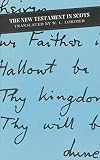 THE NEW TESTAMENT IN SCOTS
TRANSLATED BY W. L. LORIMER
ur Faither i
Hallowt be
Thy Kingdom
Thy will b